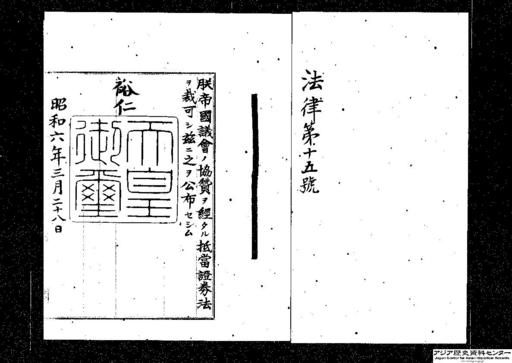 法律第十五號
朕帝國議會ノ協贊ヲ經タル抵當證券法
ヲ裁可シ玆ニ之ヲ公布セシム
裕仁
天皇御璽
昭和六年三月二十八日
アジア歴史資料センター
Japan Center for Asian Historical Records